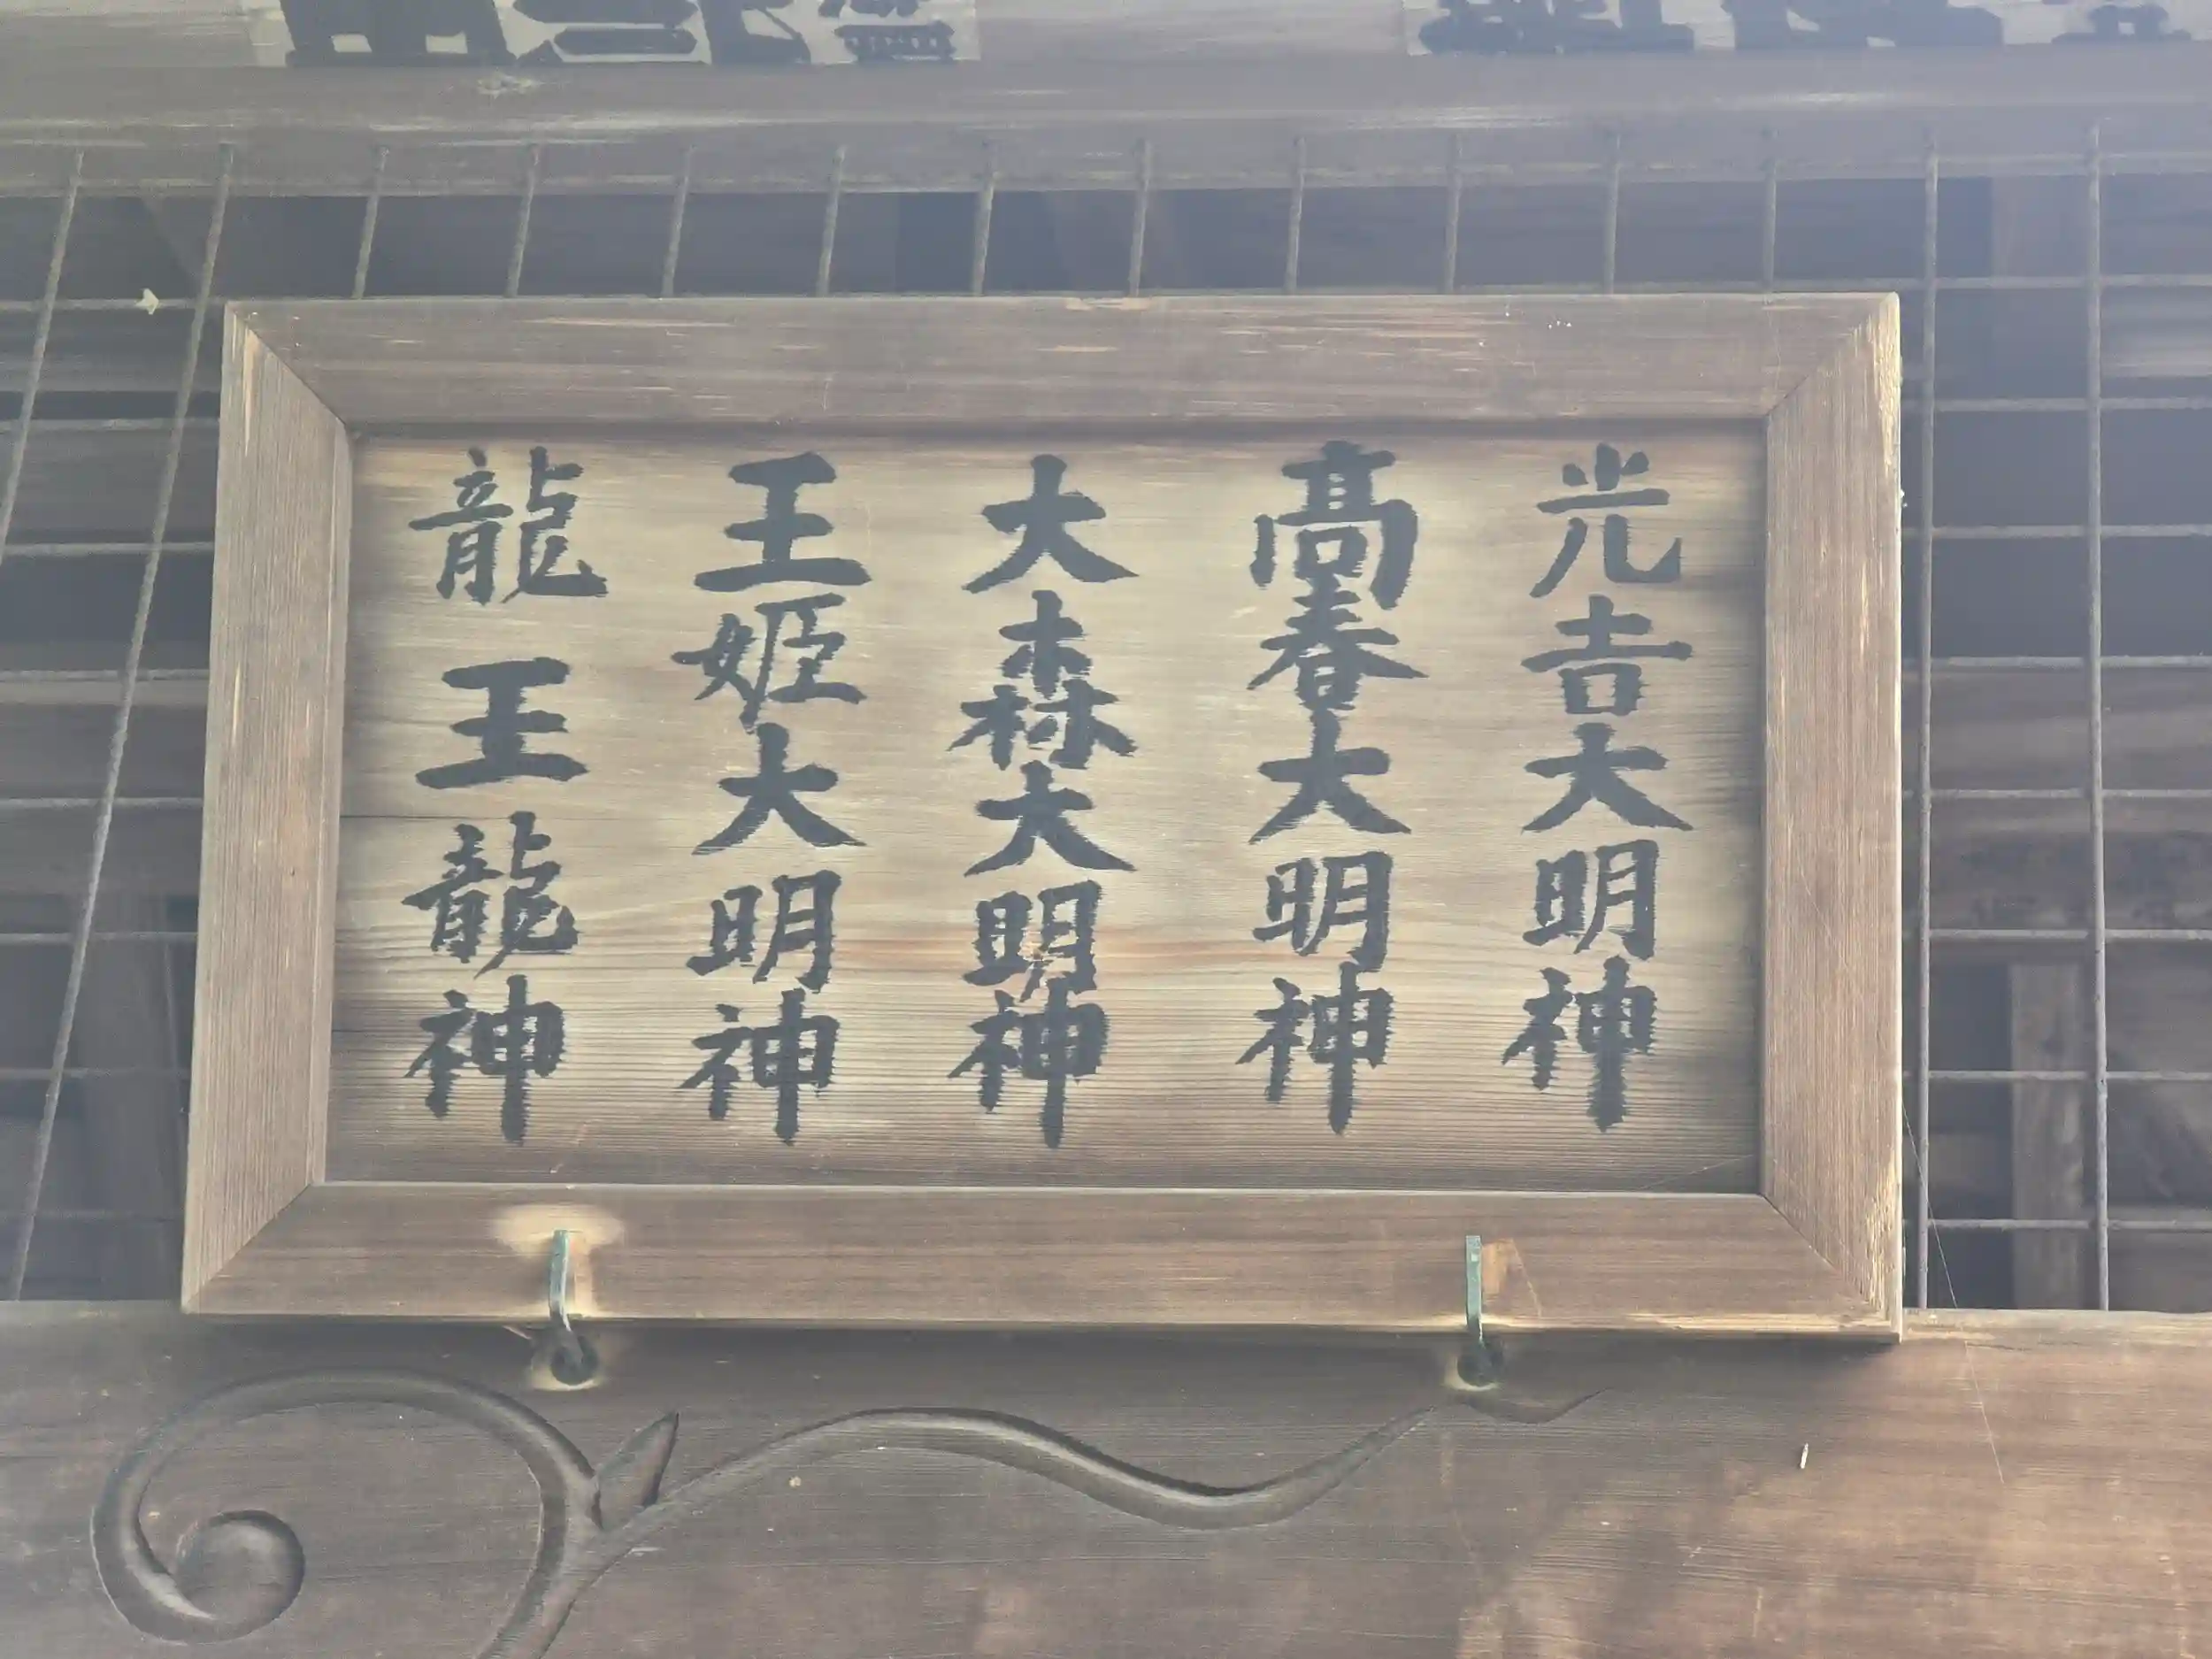 光吉大明神
髙春大明神
大森大明神
王姫大明神
龍王龍神